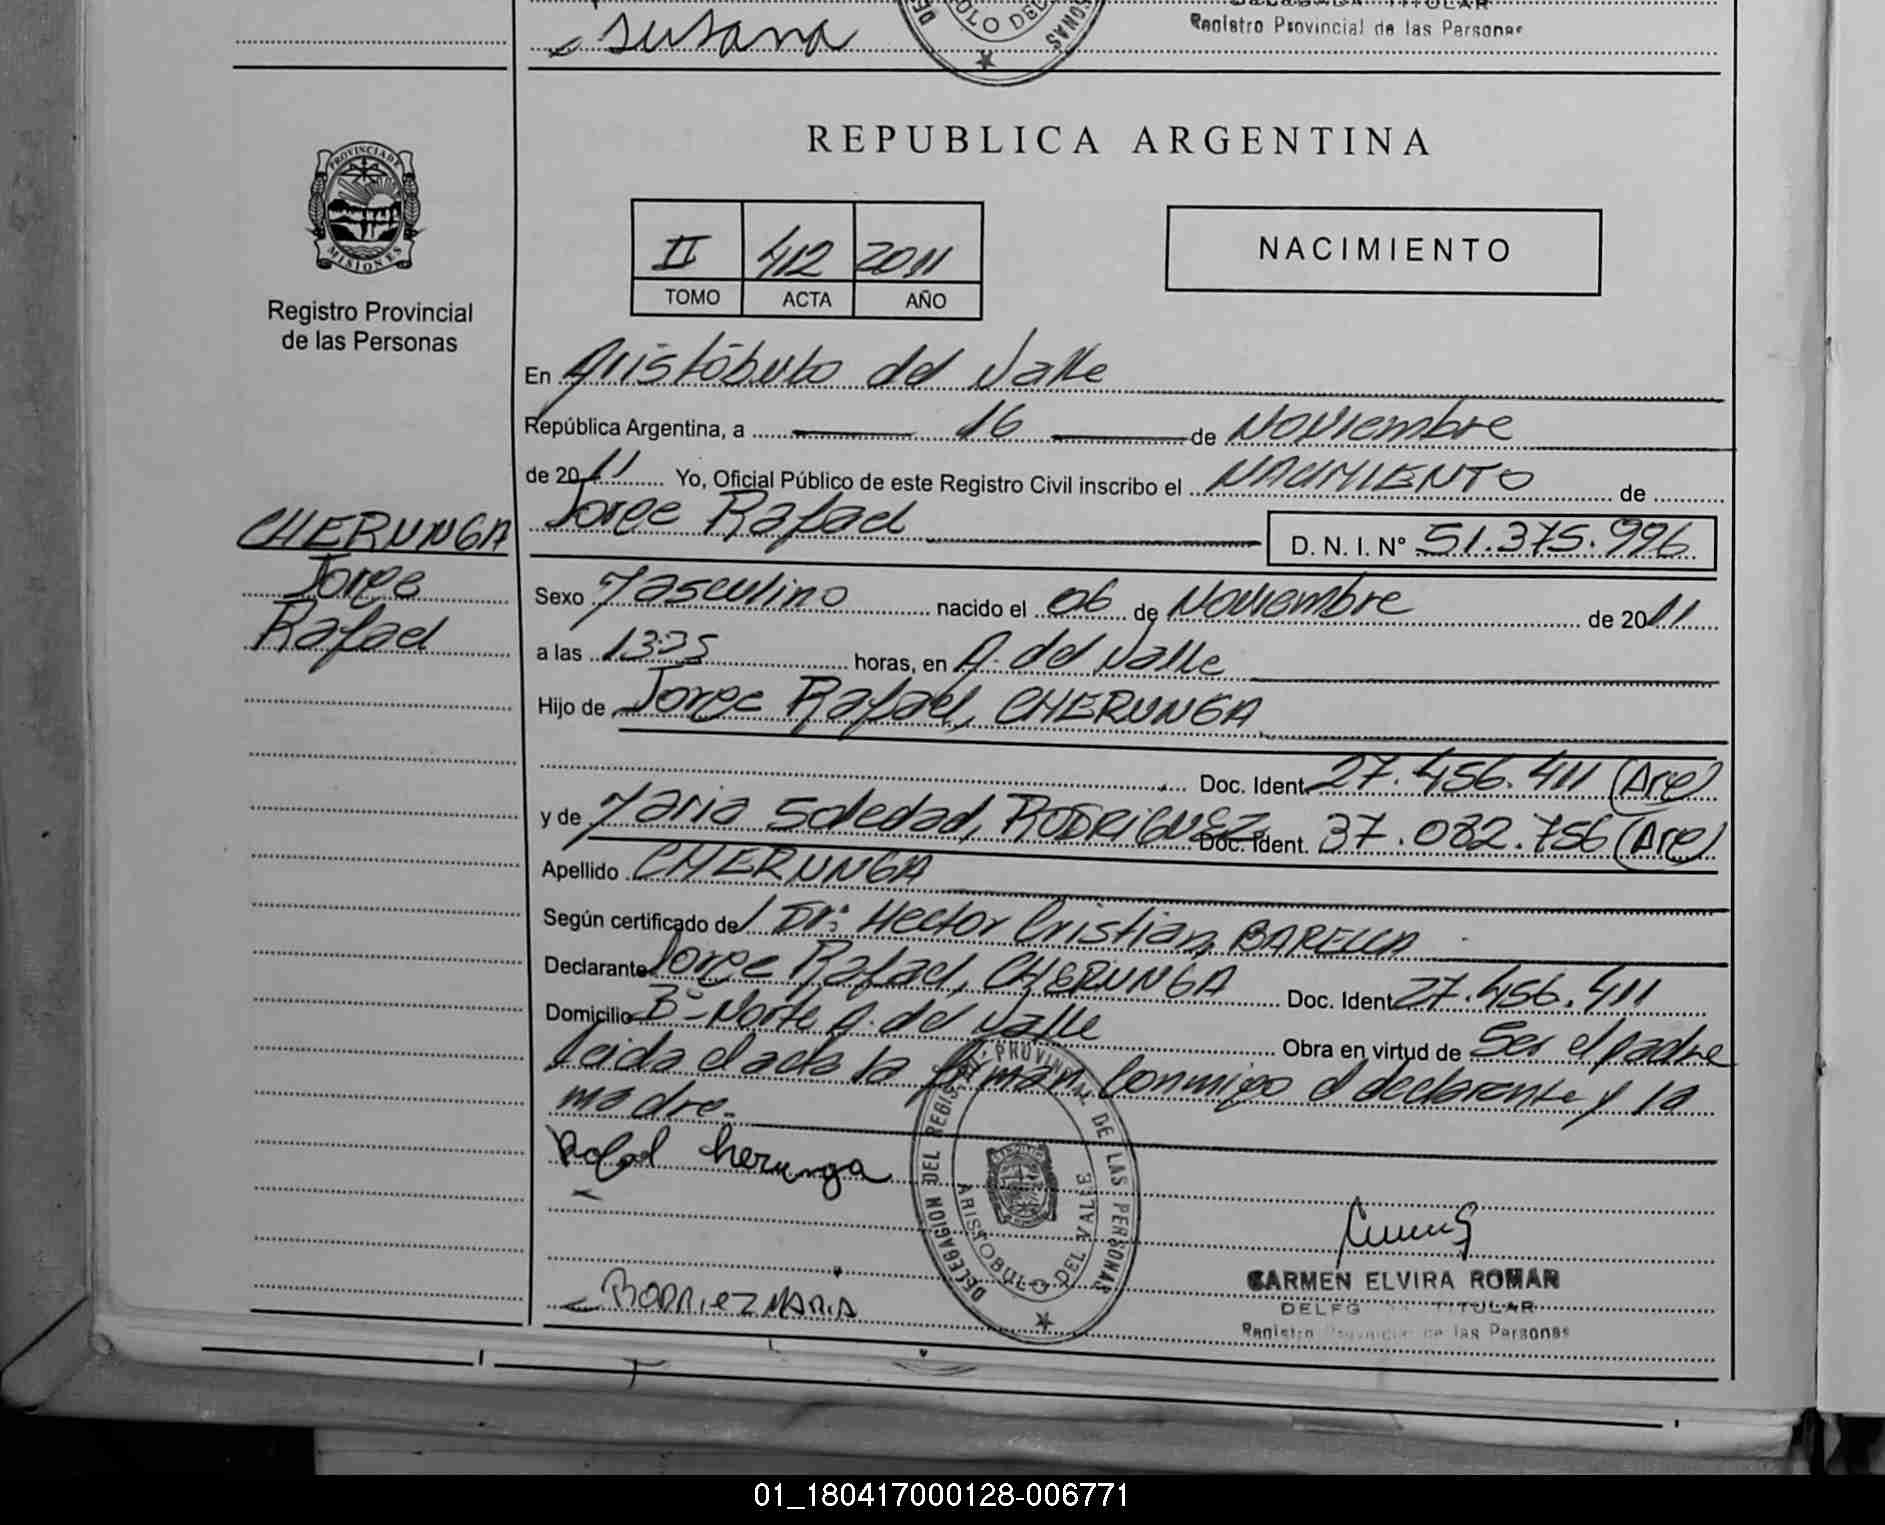 susana
DELEGADA TITULAR
Registro Provincial de las Personas
REPUBLICA ARGENTINA
PROVINCIA DE
MISIONES
Registro Provincial
de las Personas
II 412 2011
TOMO ACTA AÑO
NACIMIENTO
En Aristóbulo del Valle
República Argentina, a 16 de Noviembre
de 2011 Yo, Oficial Público de este Registro Civil inscribo el NACIMIENTO de
Jorge Rafael D. N. I. N° 51.375.996
CHERUNGA
Jorge
Rafael
Sexo Masculino nacido el 06 de Noviembre de 2011
a las 13:35 horas, en A. del Valle
Hijo de Jorge Rafael, CHERUNGA
Doc. Ident. 27.456.411 (Arg)
y de Maria Soledad, RODRIGUEZ Doc. Ident. 37.082.756 (Arg)
Apellido CHERUNGA
Según certificado de/ Dr: Hector Cristian, BARELLA
Declarante Jorge Rafael, CHERUNGA Doc. Ident. 27.456.411
Domicilio B°-Norte A. del Valle Obra en virtud de Ser el padre
Leida el acta la firman conmigo el declarante y la
madre.-
Rafael herunga
DELEGACION DEL REGISTRO PROVINCIAL DE LAS PERSONAS
ARISTOBULO DEL VALLE
CARMEN ELVIRA ROMAN
DELEG TITULAR
Registro Provincial de las Personas
RODRIEZ MARIA
01_180417000128-006771